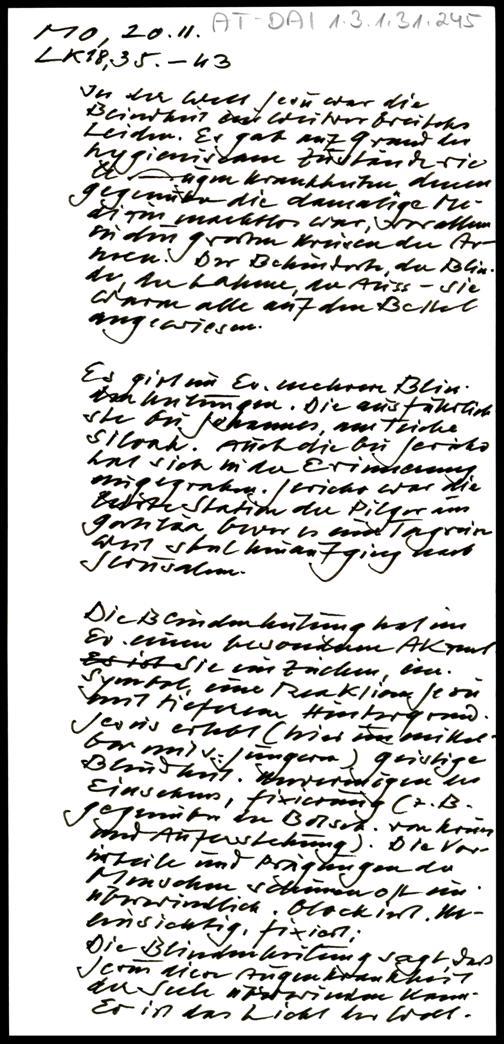 AT-DAI 1.3.1.31.245
MO, 20.11.
LK 18,35.-43
In der Welt Jesu war die
Blindheit ein weitverbreitetes
Leiden. Es gab auf Grund der
hygienischen Zustände viele
Augenkrankheiten, denen
gegenüber die damalige Me-
dizin machtlos war, vor allem
in den großen Kreisen der Ar-
men. Der Behinderte, der Blin-
de, der Lahme, der Auss- sie
waren alle auf den Bettel
angewiesen.
Es gibt im Ev. mehrere Blin-
denheilungen. Die ausführlich-
ste bei Johannes, am Teiche
Siloah. Auch die bei Jericho
hat sich in der Erinnerung
eingegraben. Jericho war die
letzte Station der Pilger aus
Galiläa bevor es eine Tagreise
weit steil hinauf ging nach
Jerusalem.
Die Blindenheilung hat im
Ev. einen besonderen Akzent
Es ist Sie ein Zeichen, ein
Symbol, eine Reaktion Jesu
mit tieferem Hintergrund.
Jesus erlebt (hier unmittel-
bar mit s. Jüngern) geistige
Blindheit. Unvermögen des
Einsehens, Fixierung (z.B.
gegenüber der Botsch. von Kreuz
und Auferstehung). Die Vor-
urteile und Prägungen der
Menschen scheinen oft un-
überwindlich. Blockiert. Un-
einsichtig, fixiert;
Die Blindenheilung sagt, dass
Jesus diese Augenkrankheit
der Seele überwinden kann.
Er ist das Licht der Welt.